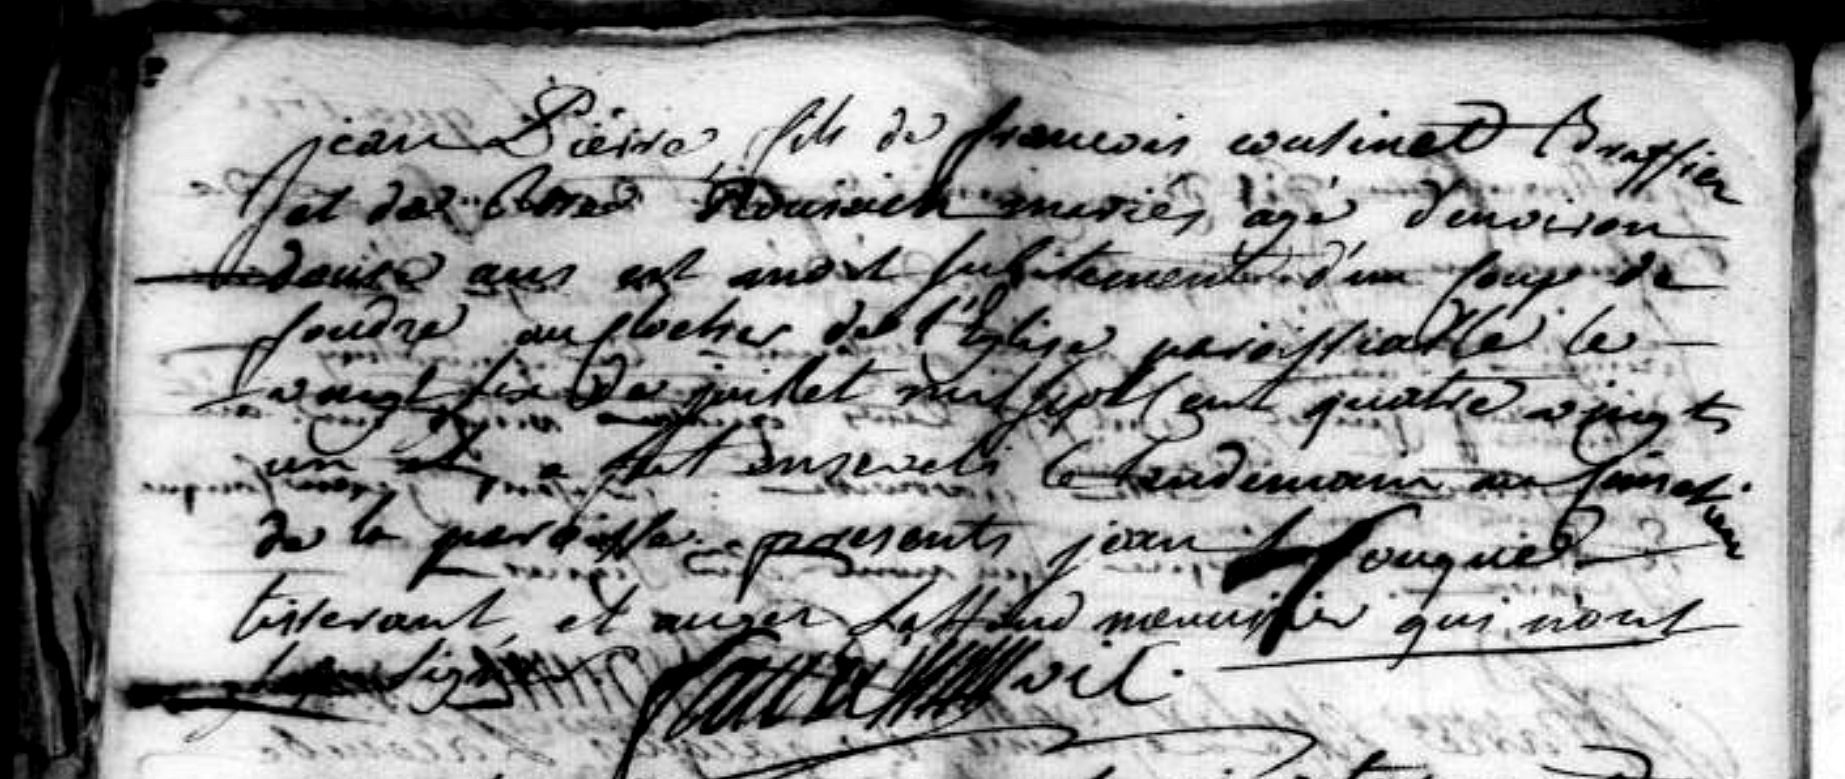 jean Pierre fils de françois cousinet Brassier
et de Roumieu mariés agé d'environ
douse ans est mort subitement d'un coup de
foudre au clocher de l'Eglise paroissialle le
vingt six de juillet mil sept cent quatre vingts
un et a eté enseveli le lendemain au cimetiere
de la paroisse presents jean Fouquet
tisserant et auger menuisier qui n'ont
sçu signé vic.